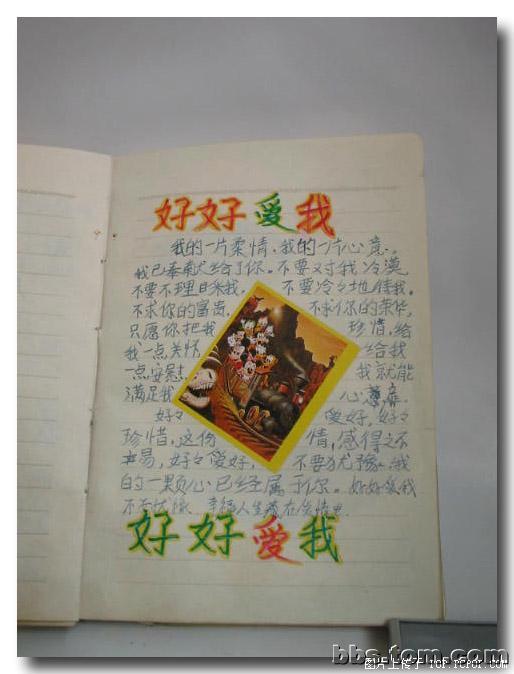 好好爱我
我的一片柔情、我的一片心意。
我已奉献给了你。不要对我冷漠
不要不理目来我。不要冷冷地待我。
不求你的富贵，不求你的荣华，
只愿你把我珍惜，给
我一点关怀给我
一点安慰我就能
满足我心
好々爱好，好々
珍惜，这份情，感得之不
易，好々爱好，不要犹豫。我
的一颗心已经属于你。好好爱我
不要犹豫
好好爱我
bbs.tom.com
图片上传于